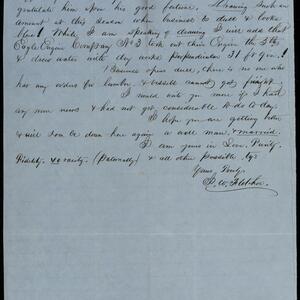 gratulate him upon his good fortune. Drawing such an
amount at this season when business is dull & looks
blue! While I am speaking of drawing I will add that
Eagle Engine Company No 3 took out their Engine the 5th
& drew water with dry works perpendicular 31 ft 9 in.!
Business opens dull, there is no one who
has any orders for lumber, & vessels cannot get freight
I would write you more if I had
any more news & had not got considerable to do to-day.
I hope you are getting better
& will soon be down here again a well man & married.
I am yours in Love, Purity,
Fidelity, & (Paternally) & all other possible
Yours Truly,
Fletcher